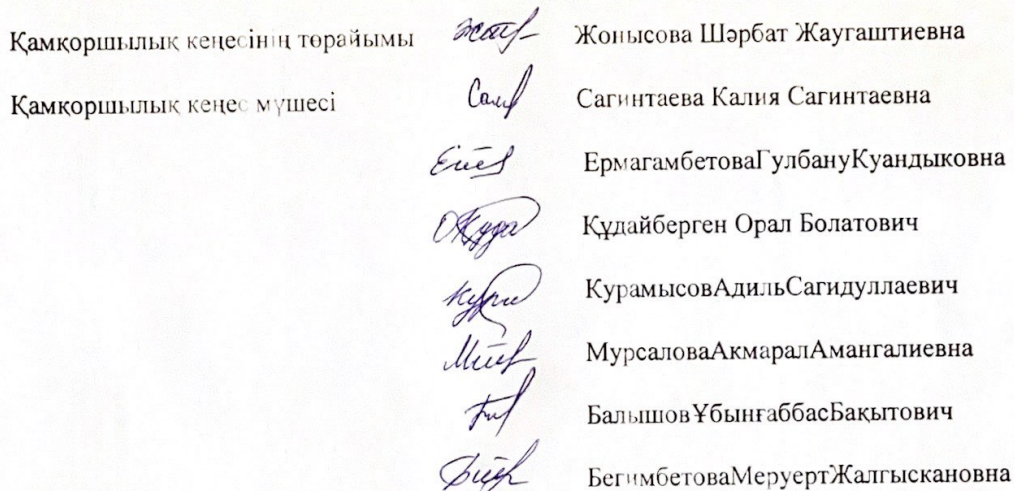 Қамқоршылық кеңесінің төрайымы Жонысова Шәрбат Жаугаштиевна
Қамқоршылық кеңес мүшесі Сагинтаева Калия Сагинтаевна
ЕрмагамбетоваГулбануКуандыковна
Құдайберген Орал Болатович
КурамысовАдильСагидуллаевич
МурсаловаАкмаралАмангалиевна
БалышовҰбынғаббасБақытович
БегимбетоваМеруертЖалгыскановна